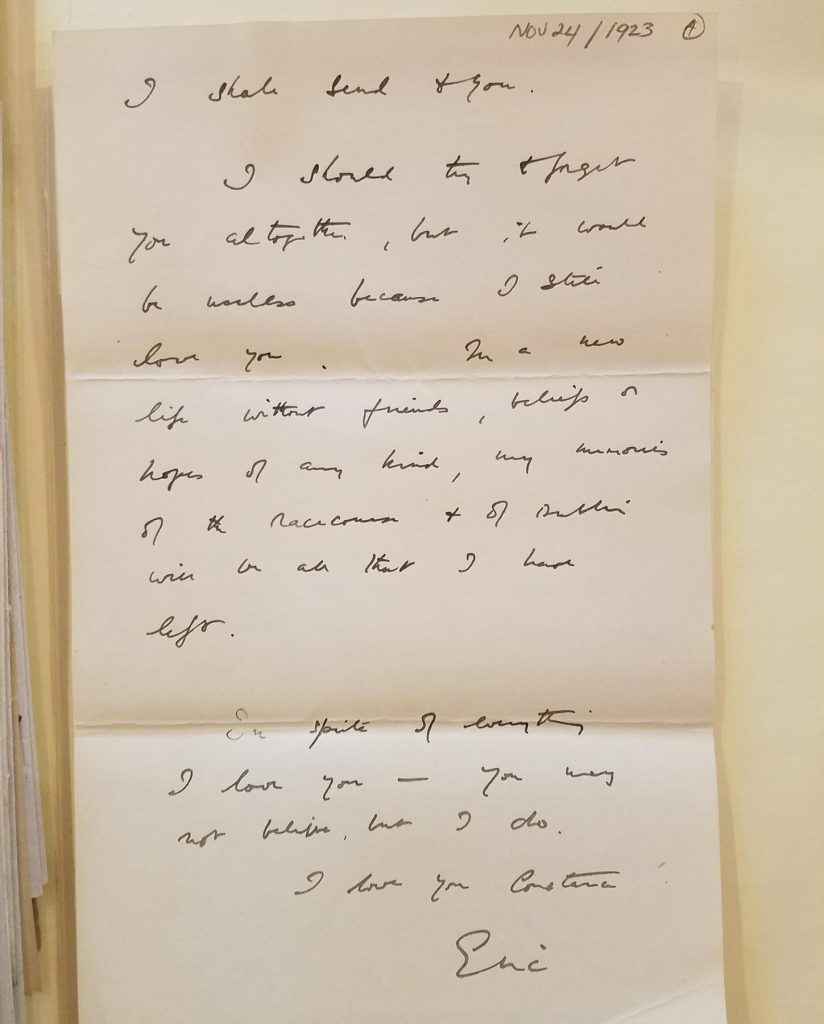 NOV 24 / 1923 ④
I shall send to you.
I should try to forget
you altogether, but it would
be useless because I still
love you. In a new
life without friends, beliefs or
hopes of any kind, my memories
of the racecourse & of Dublin
will be all that I have
left.
In spite of everything
I love you — you may
not believe, but I do.
I love you Constance
Eric